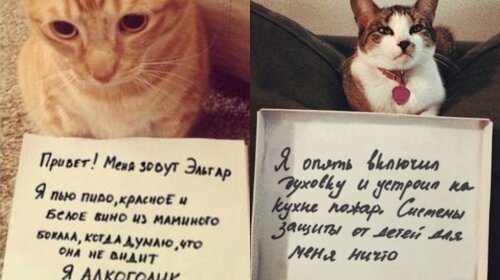 Привет! Меня зовут Эльгар
Я пью пиво, красное и
белое вино из маминого
бокала, когда думаю, что
она не видит
Я алкоголик
Я опять включил
духовку и устроил на
кухне пожар. Системы
защиты от детей для
меня ничто